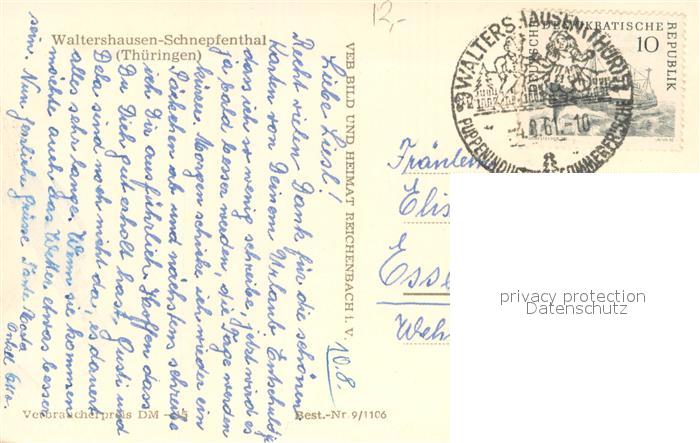 12,-
Waltershausen-Schnepfenthal
(Thüringen)
Liebe Liesl!
Recht vielen Dank für die schönen
Karten von Deinem Urlaub. Entschuldige
dass ich so wenig schreibe, jetzt wird es
ja bald besser werden, die Tage werden
kürzer. Morgen schicke ich wieder ein
Päckchen ab und nächstens schreibe
ich Dir ausführlich. Hoffen dass
Du Dich gut erholt hast. Gusti und
Dela sind noch nicht da, es dauert
alles sehr lange. Wenn sie kommen
möchte auch das Wetter etwas besser
sein. Nun herzliche Grüsse Tante Herta
Onkel Otto.
10.8.
VEB BILD UND HEIMAT REICHENBACH i. V.
Verbraucherpreis DM
Best.-Nr. 9/1106
DEUTSCHE DEMOKRATISCHE REPUBLIK
10
WALTERSHAUSEN (THÜR)
-4.8.61.-10
a
Fräulein
Elis
Esse
Weh
privacy protection
Datenschutz